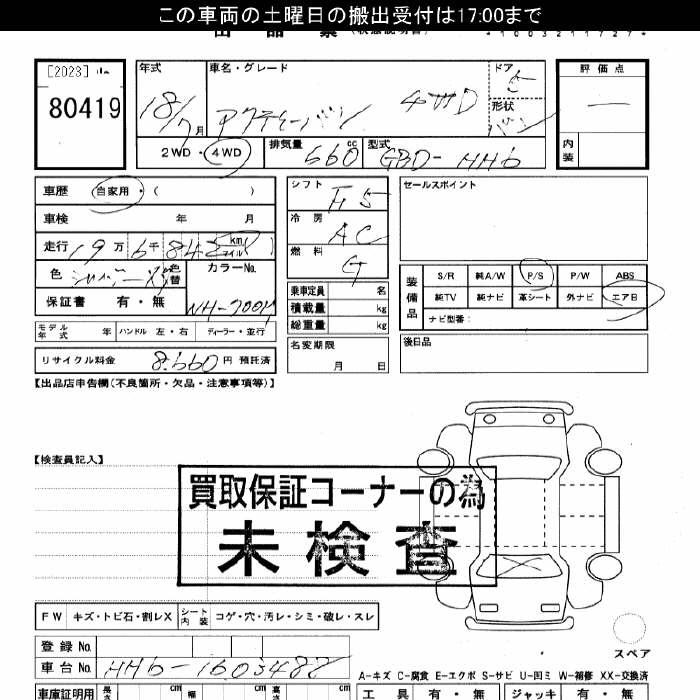 この車両の土曜日の搬出受付は17:00まで
出 品 票 (状態説明書)
*1003211727*
[2023]
80419
年式
18/7 月
車名・グレード
アクティーバン 4WD
ドア 5
形状 バン
評 価 点
—
内装
2WD ・ 4WD
排気量 660 cc
型式 GBD-HH6
車歴 自家用 ・ ( )
車検 年 月
走行 19 万 6 千 842 km マイル
色 シルバーメ 色替
カラーNo.
保証書 有・無
NH-700M
モデル年式 年 ハンドル 左・右 ディーラー・並行
リサイクル料金 8.660 円 預託済
シフト F5
冷 房 AC
燃 料 G
乗車定員 名
積載量 kg
総重量 kg
名変期限
月 日
セールスポイント
装備品
S/R 純A/W P/S P/W ABS
純TV 純ナビ 革シート 外ナビ エアB
ナビ型番:
後日品
【出品店申告欄(不良箇所・欠品・注意事項等)】
【検査員記入】
買取保証コーナーの為
未 検 査
FW キズ・トビ石・割レX シート内装 コゲ・穴・汚レ・シミ・破レ・スレ
スペア
登録 No.
車台 No. HH6-1603482
A-キズ C-腐食 E-エクボ S-サビ U-凹ミ W-補修 XX-交換済
車庫証明用 長さ cm 幅 cm 高さ cm
工 具 有・無 ジャッキ 有・無